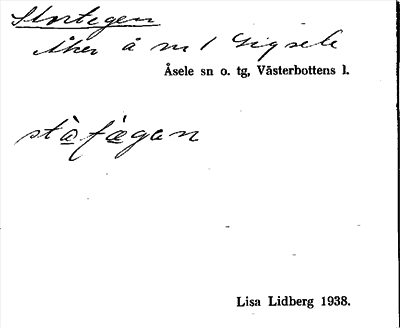 Stortegen
åker å nr 1 Gigsele
Åsele sn o. tg, Västerbottens l.
stàfægan
Lisa Lidberg 1938.